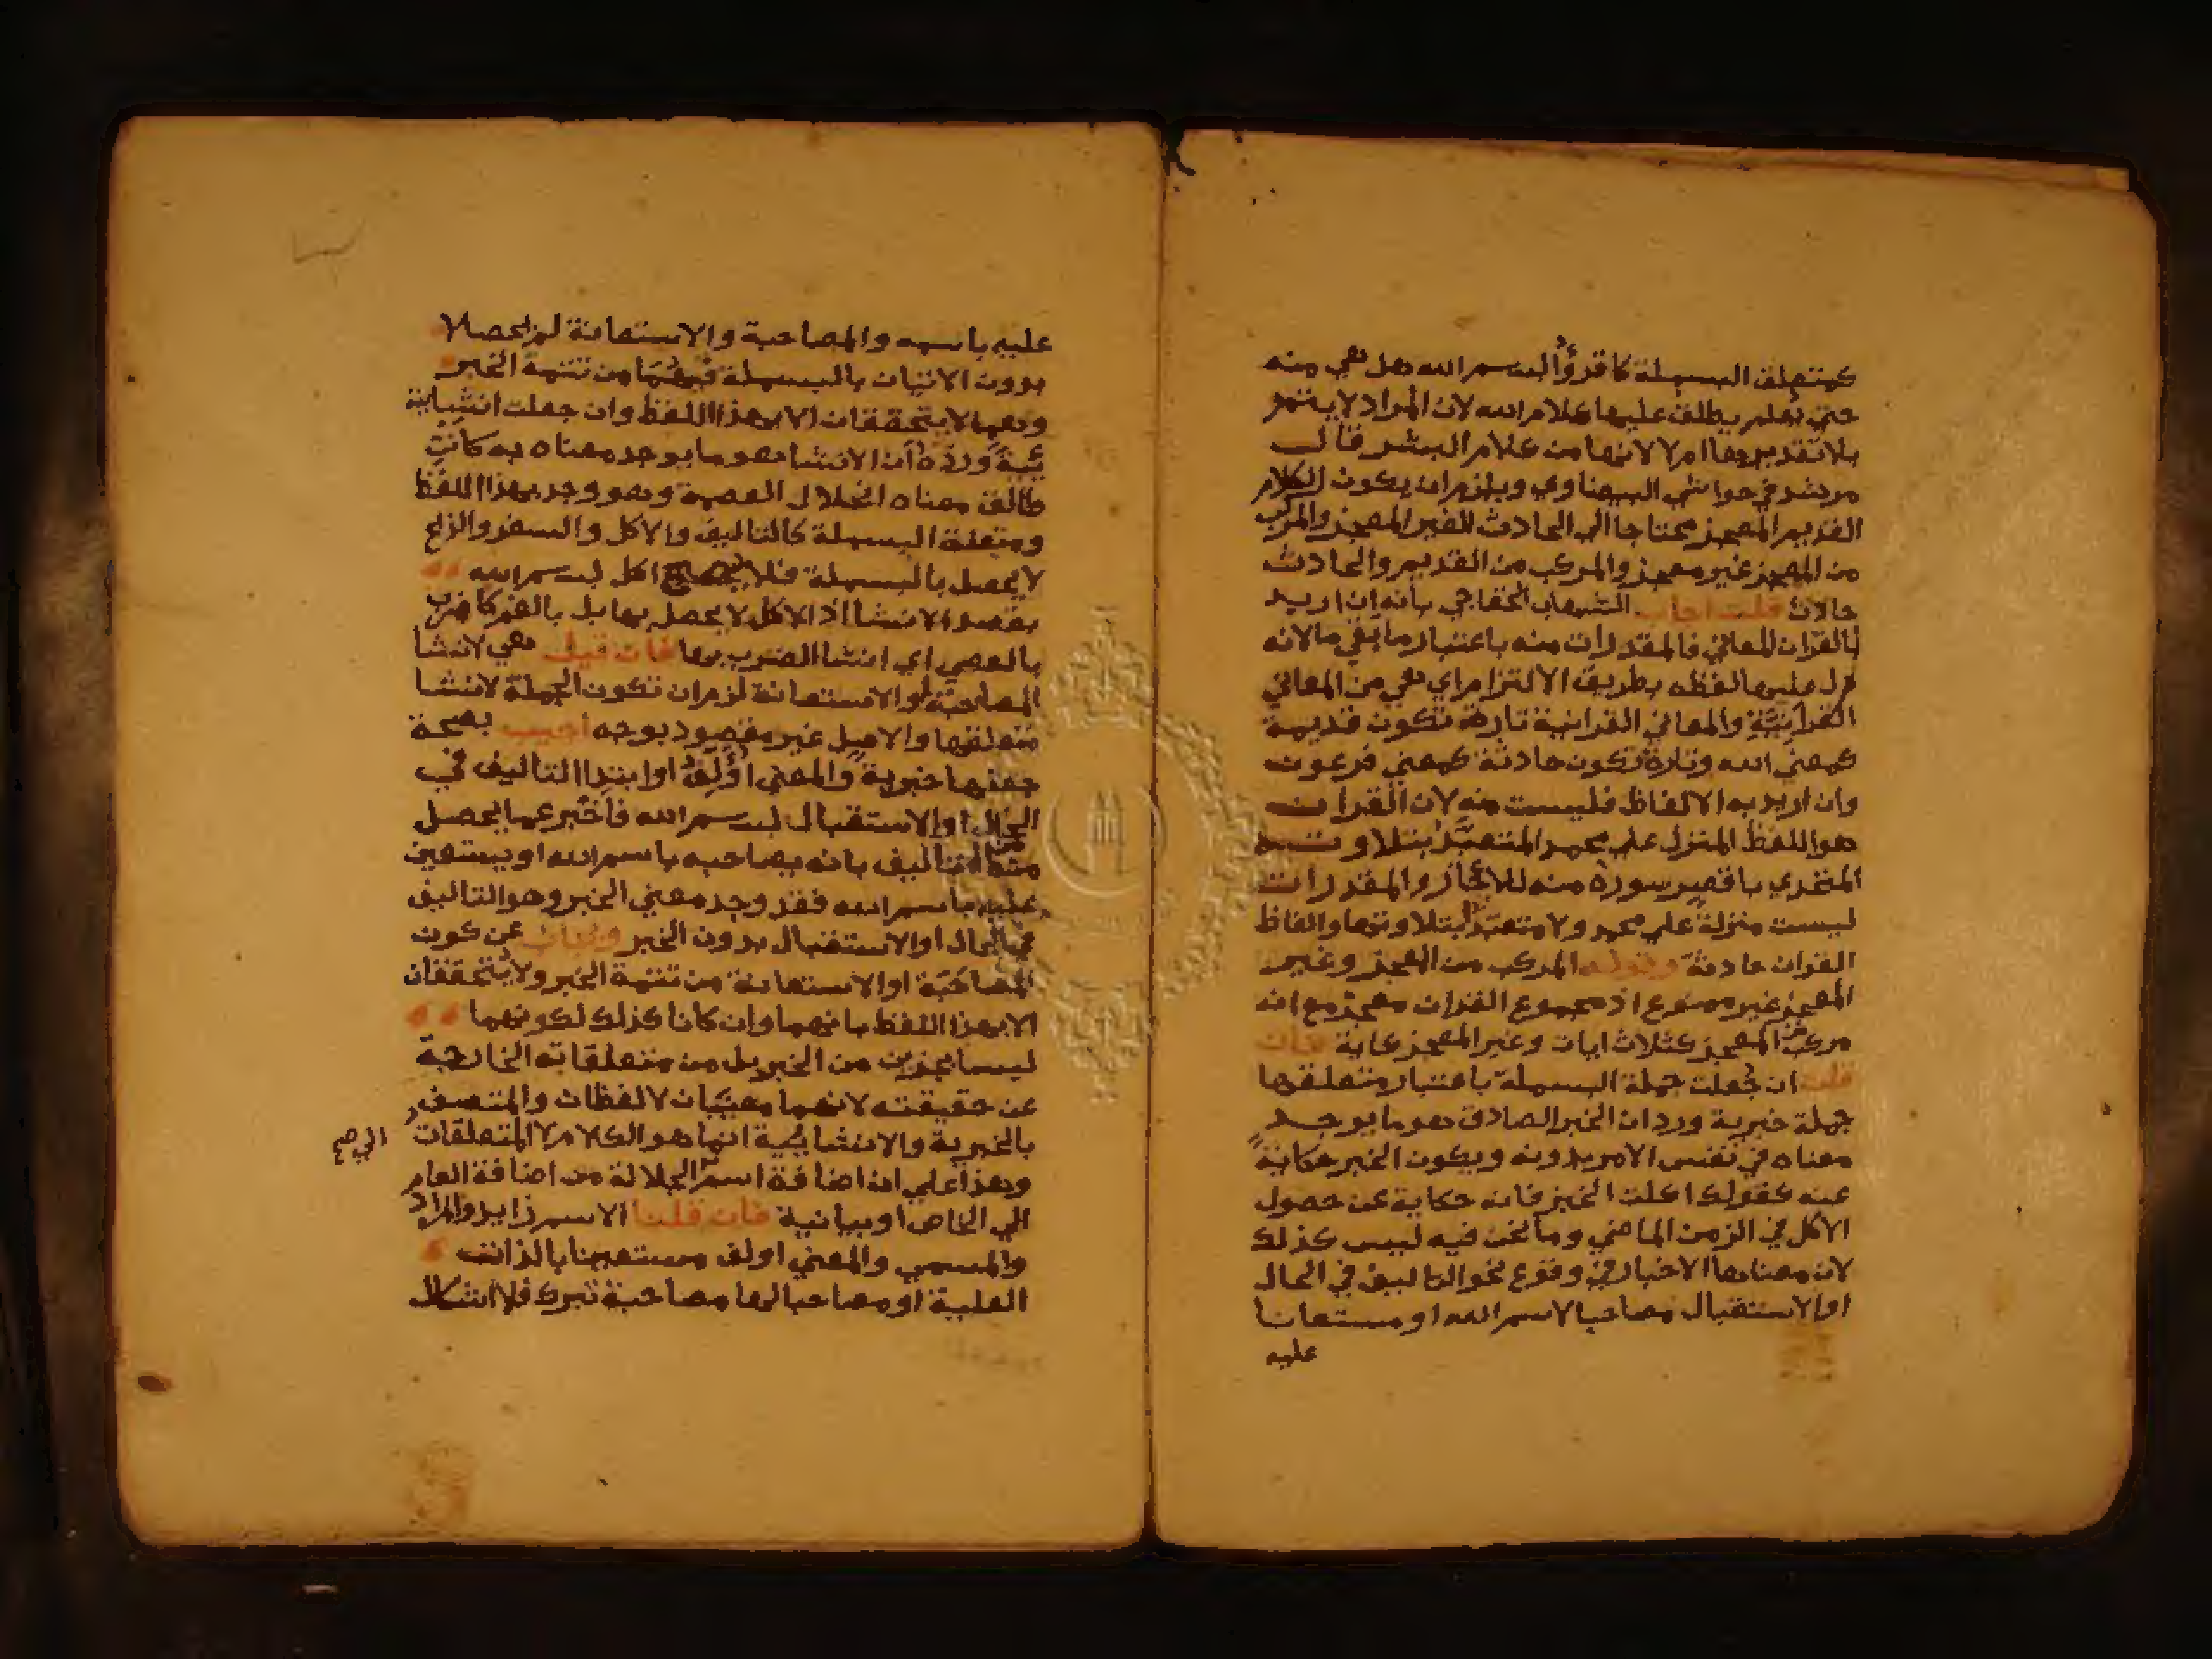 كمتعلق البسملة كاقرؤا لبسم الله هل هي منه
حتي نعلم يطلق عليها كلام الله لان المراد لا يتم
بلا تقديرها ام لا لانها من كلام البشر قال
مرشد في حواشي البيضاوي ويلزم ان يكون الكلام
القديم المعجز محتاجا الي الحادث الغير المعجز والمركب
من المعجز غير معجز والمركب من القديم والحادث
حادث قلت اجاب الشهاب الخفاجي بانه ان اريد
بالقران المعاني فالمقدرات منه باعتبار ما بقي مالانه
دل عليها لفظه بطريق الالتزام اي هي من المعاني
القرانية والمعاني القرانية تارة تكون قديمة
كمعني الله وتارة تكون حادثة كمعني فرعون
وان اريد به الالفاظ فليست منه لان القران
هو اللفظ المنزل علي محمد المتعبد بتلاوته
المتحدي باقصر سورة منه للاعجاز والمقدرات
ليست منزلة علي محمد ولا متعبد بتلاوتها والفاظ
القران حادثة وقوله المركب من المعجز وغير
المعجز غير ممنوع اذ مجموع القران معجز مع انه
مركب من المعجز كثلاث ايات وغير المعجز كاية فان
قلت ان جعلت جملة البسملة باعتبار متعلقها
جملة خبرية ورد ان الخبر الصادق هو ما يوجد
معناه في نفس الامر بدونه ويكون الخبر حكاية
عنه كقولك اكلت الخبز فانه حكاية عن حصول
الاكل في الزمن الماضي وما نحن فيه ليس كذلك
لان معناها الاخبار في وقوع نحو التاليف في الحال
او الاستقبال مصاحبا لاسم الله او مستعانا
عليه
عليه باسمه والمصاحبة والاستعانة لم يحصلا
بدون الاتيان بالبسملة فهما من تتمة الخبر
وهما لا يتحققان الا بهذا اللفظ وان جعلت انشايية
ورده ان الانشا هو ما يوجد معناه به كانت
طالق معناه انحلال العصمة وهو وجد بهذا اللفظ
ومتعلق البسملة كالتاليف والاكل والسفر والزرع
لا يحصل بالبسملة فلا يصح اكل لبسم الله
بقصد الانشا اذ الاكل لا يحصل بها بل بالفم كاضرب
بالعصي اي انشا الضرب بها فان قيل هي لانشا
المصاحبة او الاستعانة لزم ان تكون الجملة لانشا
متعلقها والاصل غير مقصود بوجه اجيب بصحة
جعلها خبرية والمعني اؤلف او ابتدا التاليف في
الحال او الاستقبال لبسم الله فاخبر عما يحصل
منه من التاليف بانه يصاحبه باسم الله او يستعين
عليه باسم الله فقد وجد معني الخبر وهو التاليف
في الحال او الاستقبال بدون الخبر ويجاب عن كون
المصاحبة او الاستعانة من تتمة الخبر ولا يتحققان
الا بهذا اللفظ بانهما وان كانا كذلك لكونهما
ليسا بجزين من الخبر بل من متعلقاته الخارجة
عن حقيقته لانهما لفظات والمتصف
بالخبرية والانشايية انما هو الكلام لا المتعلقات
وهذا علي ان اضافة اسم الي الجلالة من اضافة العام
الي الخاص او بيانية فان قلنا الاسم زايد والمراد
والمسمي والمعني اولف مستعينا بالذات
العلية او مصاحبا لها مصاحبة تبرك فلا اشكال
الي صح